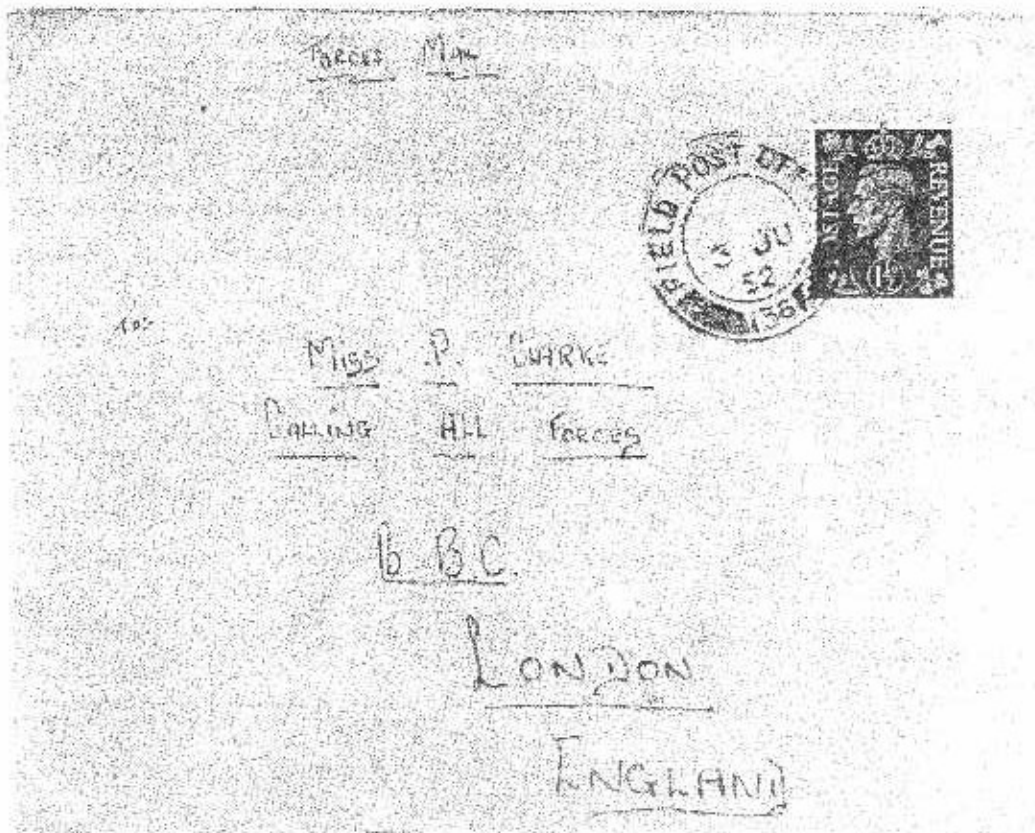 FORCES MAIL
FIELD POST OFF
3 JU
52
POSTAGE
REVENUE
1½
TO:-
MISS .P. CLARKE
CALLING ALL FORCES
B.B.C.
LONDON
ENGLAND